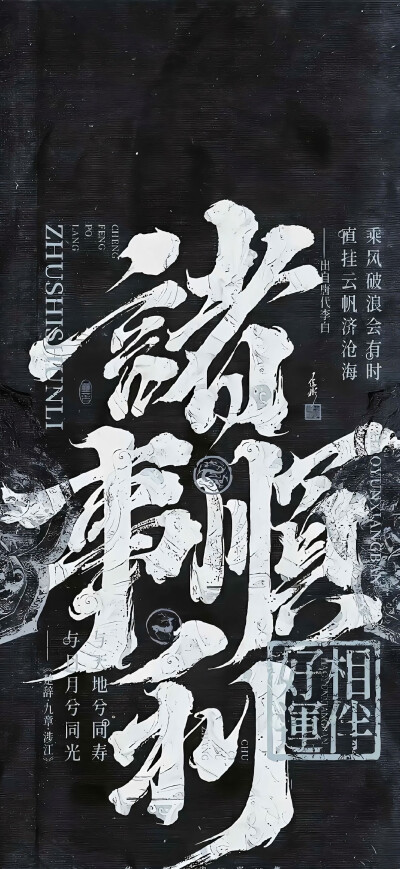 乘风破浪会有时
直挂云帆济沧海
——出自唐代李白
CHENG
FENG
PO
LANG
ZHUSHISHUNLI
諸
事順
利
與天地兮同寿
与日月兮同光
——《楚辞·九章·涉江》
相伴
好運
CHU